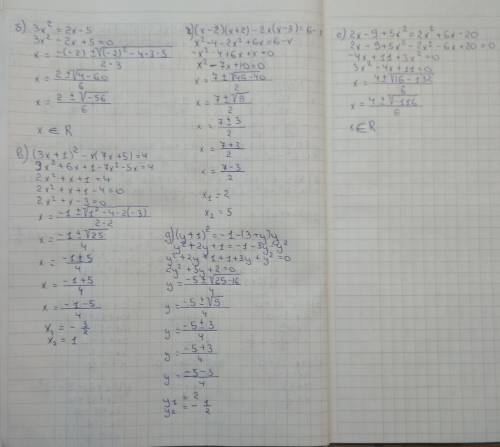 б) 3x² = 2x - 5
3x² - 2x + 5 = 0
x = -(-2) ± √(-2)² - 4·3·5 / 2·3
x = 2 ± √4 - 60 / 6
x = 2 ± √-56 / 6
x ∈ R
в) (3x + 1)² - x(7x + 5) = 4
9x² + 6x + 1 - 7x² - 5x = 4
2x² + x + 1 = 4
2x² + x + 1 - 4 = 0
2x² + x - 3 = 0
x = -1 ± √1² - 4·2·(-3) / 2·2
x = -1 ± √25 / 4
x = -1 ± 5 / 4
x = -1 + 5 / 4
x = -1 - 5 / 4
x₁ = - 3/2
x₂ = 1
г) (x - 2)(x + 2) - 2x(x - 3) = 6 -
x² - 4 - 2x² + 6x = 6 - x
x² - 7x + 10 = 0
x = 7 ± √49 - 40 / 2
x = 7 ± √9 / 2
x = 7 ± 3 / 2
x = 7 + 3 / 2
x = 7 - 3 / 2
x₁ = 2
x₂ = 5
д) (y + 1)² = -1 - (3 + y)y
y² + 2y + 1 = -1 - 3y - y²
y² + 2y + 1 + 1 + 3y + y² = 0
2y² + 5y + 2 = 0
y = -5 ± √25 - 16 / 4
y = -5 ± √ / 4
y = -5 ± 3 / 4
y = -5 + 3 / 4
y = -5 - 3 / 4
y₁ = 2
y₂ = - 1/2
е) 2x - 9 + 5x² = 2x² + 6x - 20
2x - 9 + 5x² - 2x² - 6x + 20 = 0
-4x + 11 + 3x² = 0
3x² - 4x + 11 = 0
x = 4 ± √16 - 132 / 6
x = 4 ± √-116 / 6
x ∈ R